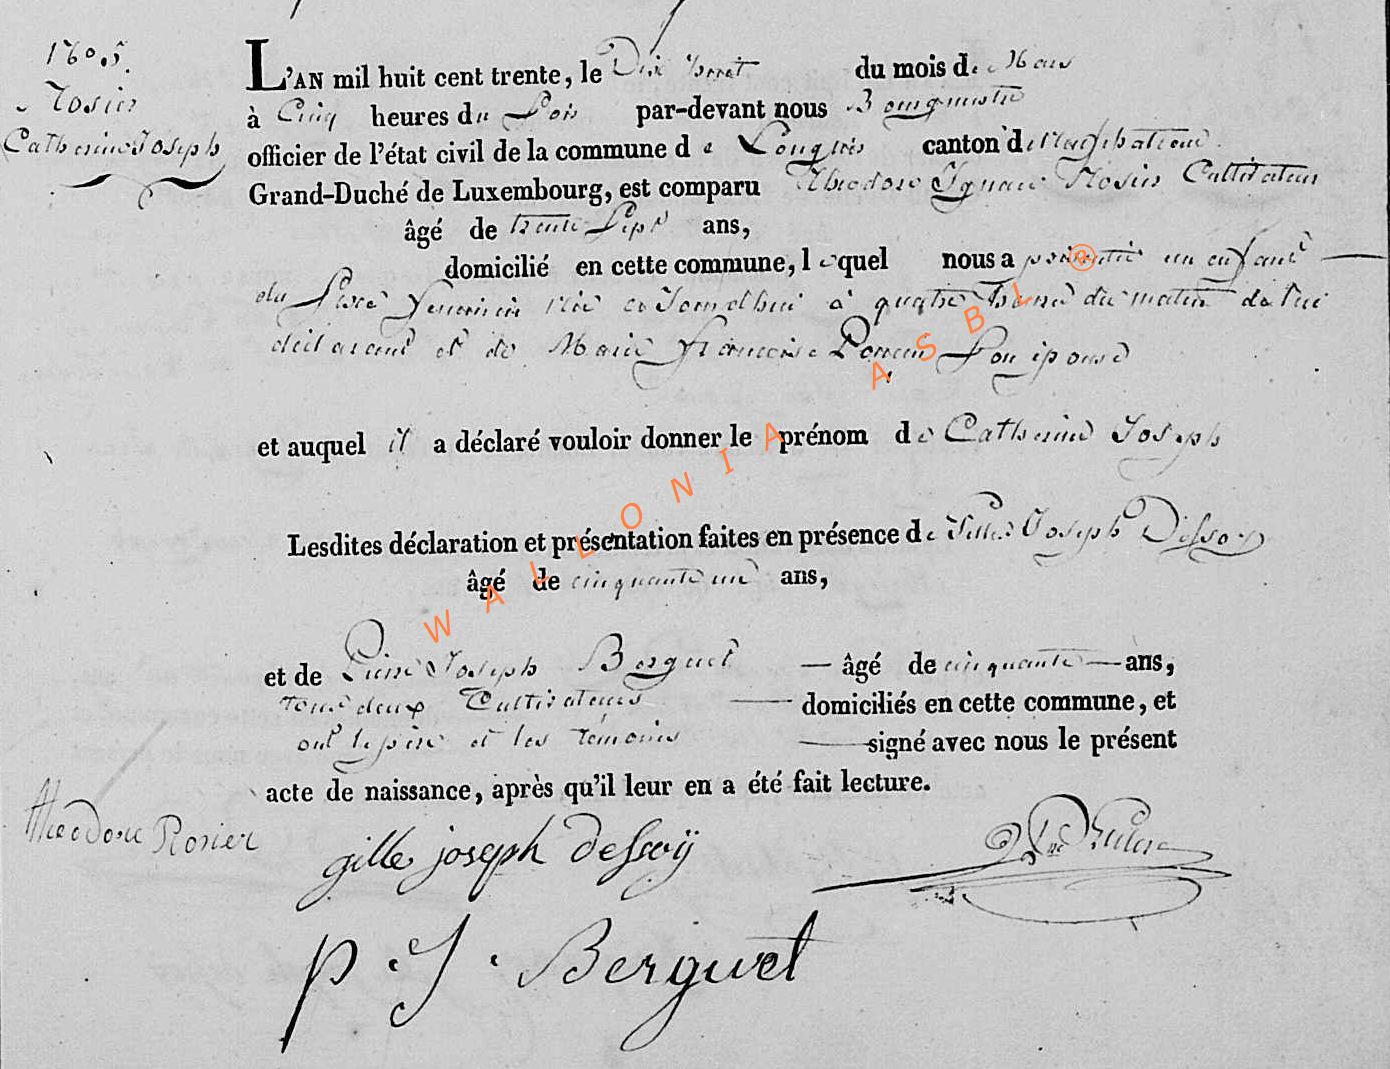 N° 5.
Rosier
Catherine Joseph
L'AN mil huit cent trente, le Dix huit du mois de Mars
à Cinq heures du Soir par-devant nous Bourgmestre
officier de l'état civil de la commune de Longvilly canton de
Grand-Duché de Luxembourg, est comparu Théodore Ignace Rosier Cultivateur
âgé de trente Sept ans,
domicilié en cette commune, lequel nous a présenté un enfant
du Sexe feminin née cejourdhui à quatre heures du matin de lui
déclarant et de Marie françoise Son épouse
et auquel il a déclaré vouloir donner le prénom de Catherine Joseph
Lesdites déclaration et présentation faites en présence de Gille Joseph Dessoy
âgé de cinquante un ans,
et de Pierre Joseph Berguet âgé de cinquante ans,
tous deux Cultivateurs domiciliés en cette commune, et
ont le père et les témoins signé avec nous le présent
acte de naissance, après qu'il leur en a été fait lecture.
Théodore Rosier
gille joseph dessoÿ
P J. Berguet
WALLONIA ASBL ®